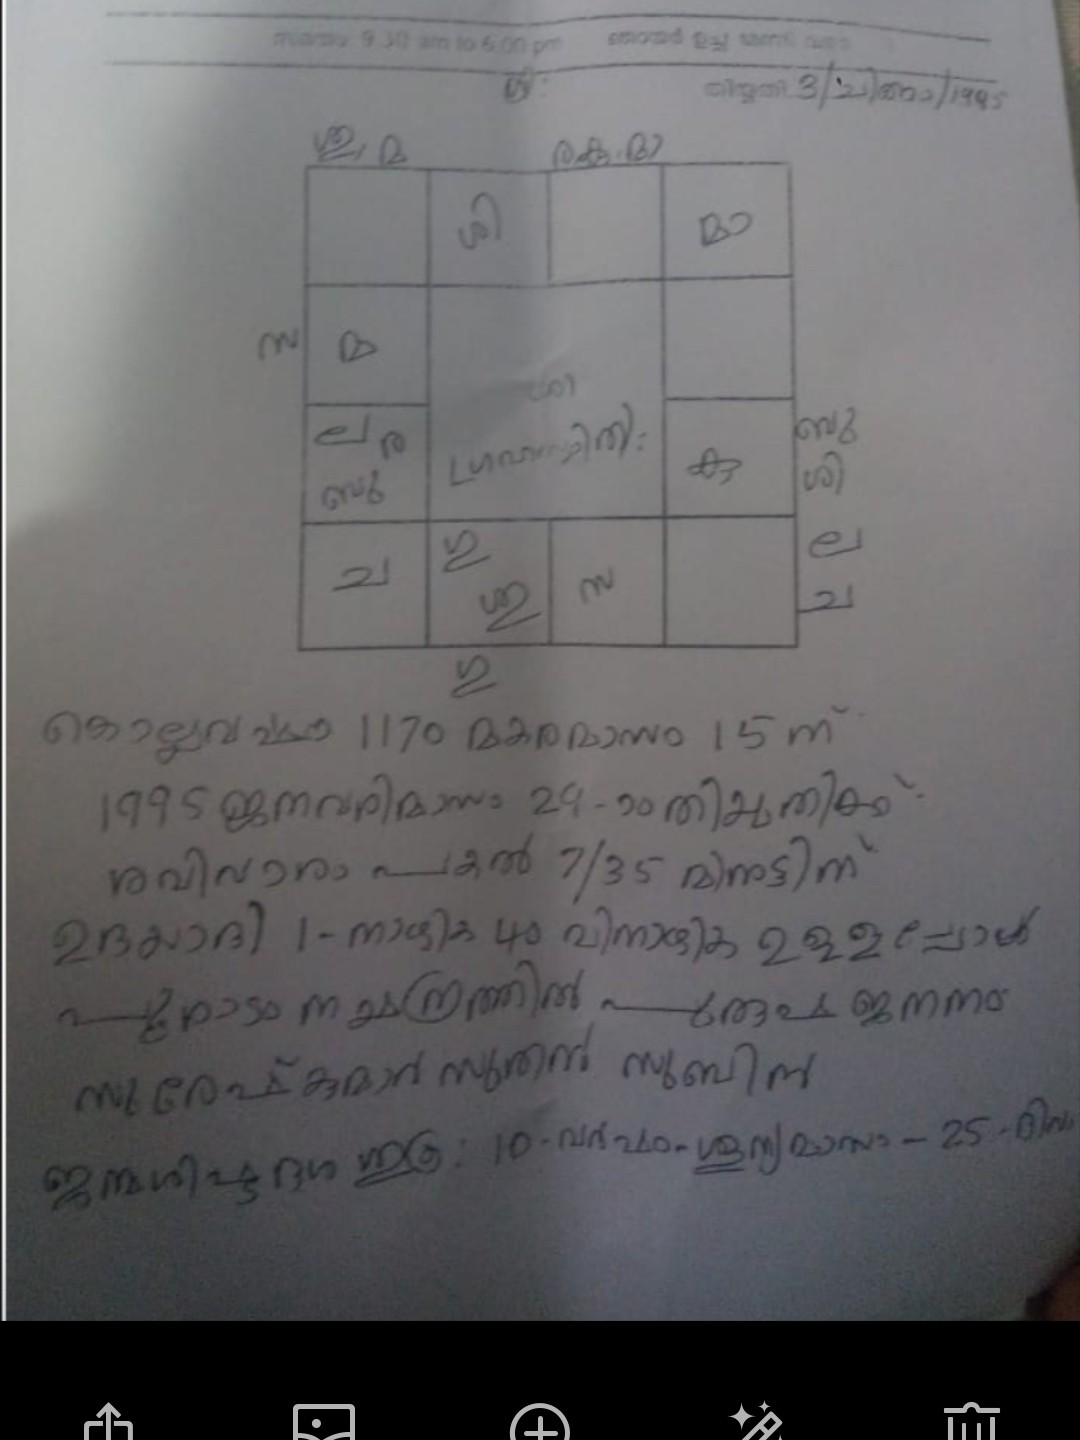 സമയം 9.30 am to 6.00 pm
തിയ്യതി 3/ചിങ്ങം/1995
ശു, മ
ര കു. മാ
ശി
മാ
സ
മ
ല ര
ബു
ഗ്രഹസ്ഥിതി:
കു
ബു
ശി
ച
ഗു
ശു
സ
ല
ച
ഗു
കൊല്ലവർഷം 1170 മകരമാസം 15 ന്
1995 ജനവരിമാസം 29-ാം തിയ്യതിക്ക്
രവിവാരം പകൽ 7/35 മിനുട്ടിന്
ഉദയാദി 1-നാഴിക 40 വിനാഴിക ഉള്ളപ്പോൾ
പൂരാടം നക്ഷത്രത്തിൽ പുരുഷ ജനനം
സുരേഷ്കുമാർ സുതൻ സുബിൻ
ജന്മശിഷ്ട ദശ ശുക്ര: 10-വർഷം-ശൂന്യമാസം-25-ദിവ